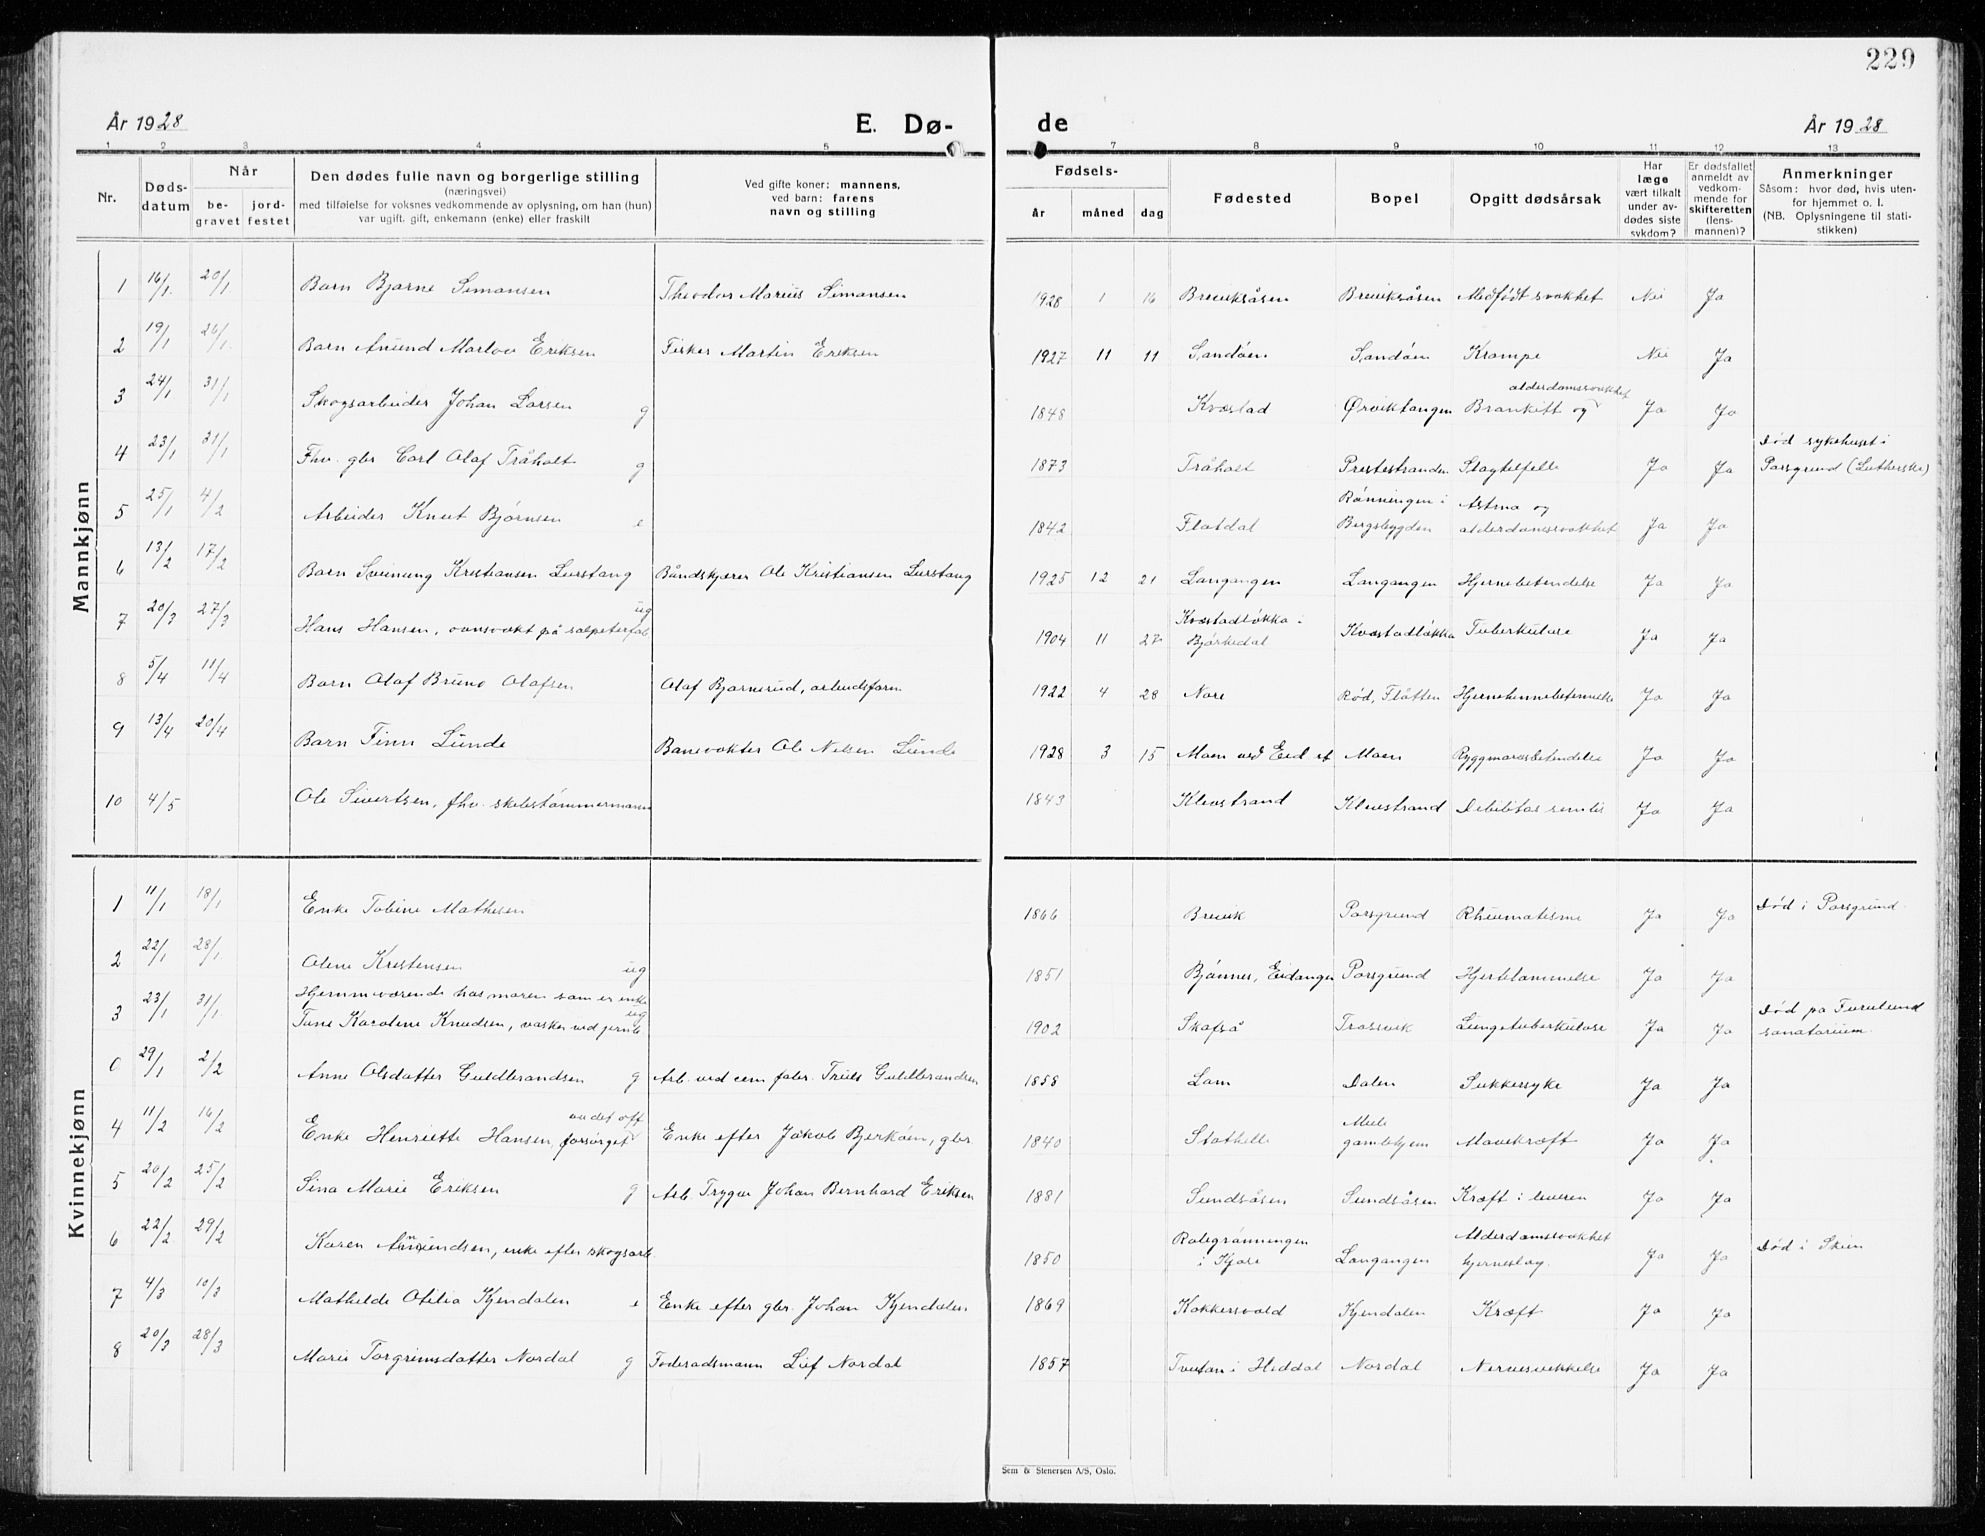 229
År 1928 E. Dø- de År 1928
1 2 3 4 5 7 8 9 10 11 12 13
Nr. Døds-datum Når be-gravet jord-festet Den dødes fulle navn og borgerlige stilling (næringsvei) med tilføielse for voksnes vedkommende av oplysning, om han (hun) var ugift, gift, enkemann (enke) eller fraskilt Ved gifte koner: mannens, ved barn: farens navn og stilling Fødsels- år måned dag Fødested Bopel Opgitt dødsårsak Har læge vært tilkalt under av-dødes siste sykdom? Er dødsfallet anmeldt av vedkom-mende for skifteretten (lens-mannen)? Anmerkninger Såsom: hvor død, hvis uten-for hjemmet o. l. (NB. Oplysningene til stati-stikken)
Mannkjønn
1 16/1 20/1 Barn Bjarne Simonsen Theodor Marius Simonsen 1928 1 16 Breviksåsen Breviksåsen Medfødt svakhet Nei Ja
2 19/1 26/1 Barn Anund Marlov Eriksen Fisker Martin Eriksen 1927 11 11 Sandöen Sandöen Krampe Nei Ja
3 24/1 31/1 Skogsarbeider Johan Larsen g 1848 Kvæstad Ørviktangen Bronkitt og alderdomssvakhet Ja Ja
4 23/1 31/1 Fhv. gbr Carl Olaf Tråholt g 1873 Tråholt Prestestranden Slagtilfelle Ja Ja Død sykehuset i Porsgrund (Lutherske)
5 25/1 4/2 Arbeider Knut Bjørnsen e 1842 Flatdal Rönningen i Bergsbygden Astma og alderdomssvakhet Ja Ja
6 13/2 17/2 Barn Sveinung Kristiansen Lurstang Båndskjærer Ole Kristiansen Lurstang 1925 12 21 Langangen Langangen Hjernebetendelse Ja Ja
7 20/3 27/3 Hans Hansen, ovnsvakt på salpeterfab ug 1904 11 27 Kvæstadløkka i Bjørkedal Kvæstadløkka Tuberkulose Ja Ja
8 5/4 11/4 Barn Olaf Bruno Olafsen Olaf Bjørnerud, arbeidsform 1922 4 28 Nore Rød, Flåtten Hjernehinnebetennelse Ja Ja
9 13/4 20/4 Barn Finn Lunde Banevokter Ole Nilsen Lunde 1928 3 15 Moen ved Eid st Moen Ryggmarvsbetendelse Ja Ja
10 4/5 Ole Sivertsen, fhv. skibstømmermann 1843 Klevstrand Klevstrand Debilitas senilis Ja Ja
Kvinnekjønn
1 11/1 18/1 Enke Tobine Mathisen 1866 Brevik Porsgrund Rheumatisme Ja Ja Død i Porsgrund
2 22/1 28/1 Olene Kristensen ug 1851 Bjønnes, Eidanger Porsgrund Hjertelammelse Ja Ja
3 23/1 31/1 Hjemmværende hos moren som er enke Tone Karolene Knudsen, vasker ved jernb ug 1902 Skafså Trosvik Lungetuberkulose Ja Ja Død på Furulund sanatorium
0 29/1 2/2 Anne Olsdatter Guldbrandsen g Arb. ved cem. fabr. Truls Guldbrandsen 1858 Lom Dalen Sukkersyke Ja Ja
4 11/2 16/2 Enke Henriette Hansen, forsörget av det off Enke efter Jakob Bjerköen, gbr 1840 Stathelle Mule gamlehjem Mavekræft Ja Ja
5 20/2 25/2 Sina Marie Eriksen g Arb. Trygve Johan Bernhard Eriksen 1881 Sundsåsen Sundsåsen Kræft i leveren Ja Ja
6 22/2 29/2 Karen Amundsen, enke efter skogsarb. 1850 i Kjose Langangen Alderdomssvakhet hjerneslag. Ja Ja Død i Skien
7 4/3 10/3 Mathilde Otilia Kjendalen e Enke efter gbr. Johan Kjendalen 1869 Kokkersvold Kjendalen Kræft Ja Ja
8 20/3 28/3 Marie Torgrimsdatter Nordal g Föderådsmann Lief Nordal 1857 Tveitan i Heddal Nordal Nervesvekkelse Ja Ja
Sem & Stenersen A/S, Oslo.